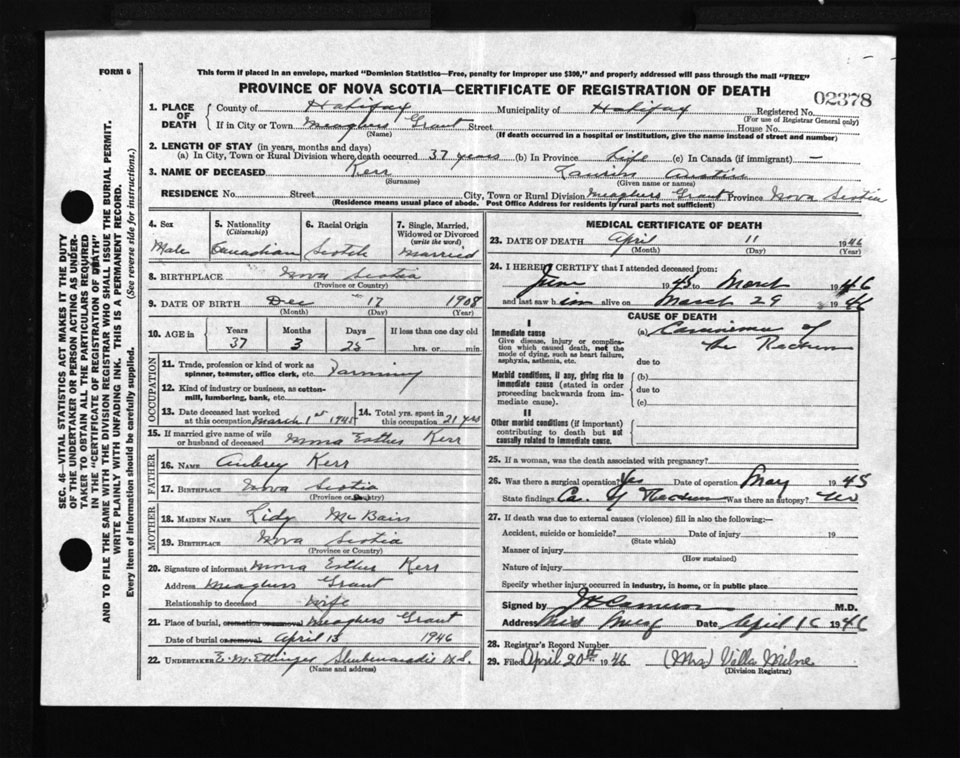 FORM 6
This form if placed in an envelope, marked "Dominion Statistics—Free, penalty for improper use $300," and properly addressed will pass through the mail "FREE"
PROVINCE OF NOVA SCOTIA—CERTIFICATE OF REGISTRATION OF DEATH
02378
1. PLACE OF DEATH
County of Halifax Municipality of Halifax Registered No.
(For use of Registrar General only)
If in City or Town Meaghers Grant Street House No.
(Name) (If death occurred in a hospital or institution, give the name instead of street and number)
2. LENGTH OF STAY (in years, months and days)
(a) In City, Town or Rural Division where death occurred 37 years (b) In Province Life (c) In Canada (if immigrant) —
3. NAME OF DECEASED Kerr Austin
(Surname) (Given name or names)
RESIDENCE No. Street City, Town or Rural Division Meaghers Grant Province Nova Scotia
(Residence means usual place of abode. Post Office Address for residents in rural parts not sufficient)
4. Sex Male
5. Nationality (Citizenship) Canadian
6. Racial Origin Scotch
7. Single, Married, Widowed or Divorced (write the word) Married
8. BIRTHPLACE Nova Scotia
(Province or Country)
9. DATE OF BIRTH Dec 17 1908
(Month) (Day) (Year)
10. AGE in Years Months Days If less than one day old
37 3 25 hrs. or min.
OCCUPATION
11. Trade, profession or kind of work as spinner, teamster, office clerk, etc. Farming
12. Kind of industry or business, as cotton-mill, lumbering, bank, etc.
13. Date deceased last worked at this occupation March 1st 1945
14. Total yrs. spent in this occupation 21 yrs
15. If married give name of wife or husband of deceased Mona Esther Kerr
FATHER
16. NAME Aubrey Kerr
17. BIRTHPLACE Nova Scotia
(Province or Country)
MOTHER
18. MAIDEN NAME McBain
19. BIRTHPLACE Nova Scotia
(Province or Country)
20. Signature of informant Mona Esther Kerr
Address Meaghers Grant
Relationship to deceased Wife
21. Place of burial, cremation or removal Meaghers Grant
Date of burial or removal April 13 1946
22. UNDERTAKER E. M. Ettinger Shubenacadie N.S.
(Name and address)
MEDICAL CERTIFICATE OF DEATH
23. DATE OF DEATH April 11 1946
(Month) (Day) (Year)
24. I HEREBY CERTIFY that I attended deceased from:
June 1945 to March 1946
and last saw him alive on March 29 1946
CAUSE OF DEATH
I
Immediate cause
Give disease, injury or complication which caused death, not the mode of dying, such as heart failure, asphyxia, asthenia, etc.
(a) Carcinoma of the Rectum
due to
Morbid conditions, if any, giving rise to immediate cause (stated in order proceeding backwards from immediate cause).
(b)
due to
(c)
II
Other morbid conditions (if important) contributing to death but not causally related to immediate cause.
25. If a woman, was the death associated with pregnancy?
26. Was there a surgical operation? Yes Date of operation May 1945
State findings Ca. of Rectum Was there an autopsy? No
27. If death was due to external causes (violence) fill in also the following:—
Accident, suicide or homicide? Date of injury 19
(State which)
Manner of injury
(How sustained)
Nature of injury
Specify whether injury occurred in industry, in home, or in public place
Signed by Cameron M.D.
Address Date April 15 1946
28. Registrar's Record Number
29. Filed April 20th 1946 (Mrs) Villa Milne
(Division Registrar)
SEC. 46—VITAL STATISTICS ACT MAKES IT THE DUTY
OF THE UNDERTAKER OR PERSON ACTING AS UNDER-
TAKER TO OBTAIN ALL THE PARTICULARS REQUIRED
IN THE "CERTIFICATE OF REGISTRATION OF DEATH"
AND TO FILE THE SAME WITH THE DIVISION REGISTRAR WHO SHALL ISSUE THE BURIAL PERMIT.
WRITE PLAINLY WITH UNFADING INK. THIS IS A PERMANENT RECORD.
Every item of information should be carefully supplied. (See reverse side for instructions.)